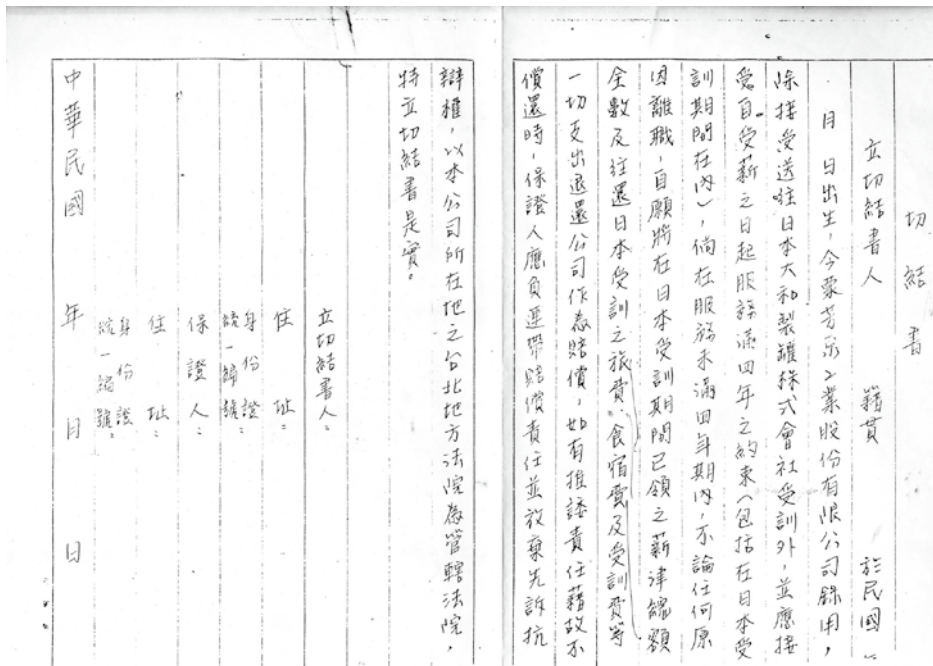 切結書
立切結書人　　籍貫　　於民國
月　日出生，今蒙芳泉工業股份有限公司錄用，
除接受送往日本大和製罐株式會社受訓外，並應接
受自受薪之日起服務滿四年之約束（包括在日本受
訓期間在內），倘在服務未滿四年期內，不論任何原
因離職，自願將在日本受訓期間已領之薪津總額
全數及往還日本受訓之旅費、食宿費及受訓費等
一切支出退還公司作為賠償，如有推諉責任藉故不
償還時，保證人應負連帶賠償責任並放棄先訴抗
辯權，以本公司所在地之台北地方法院為管轄法院，
特立切結書是實。
立切結書人：
住址：
身份證統一編號：
保證人：
住址：
身份證統一編號：
中華民國　年　月　日